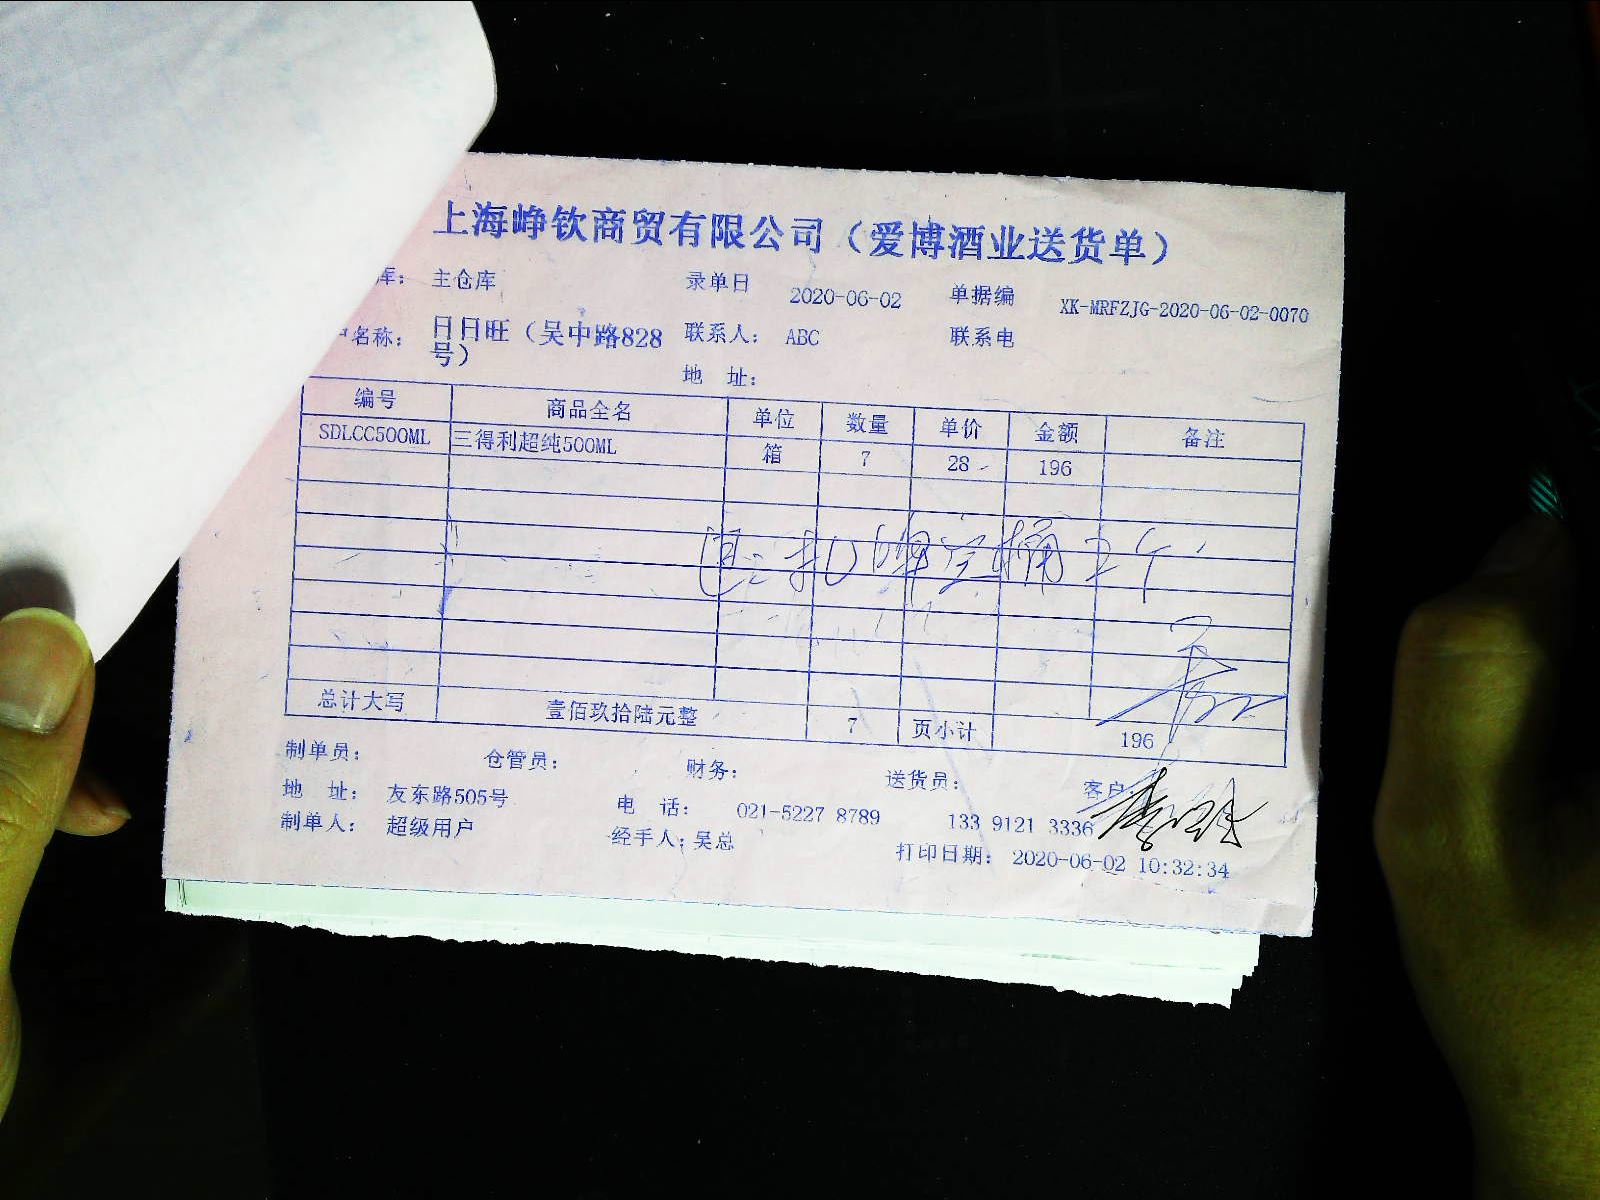 上海峥钦商贸有限公司（爱博酒业送货单）
库： 主仓库 录单日 2020-06-02 单据编 XK-MRFZJG-2020-06-02-0070
名称： 日日旺（吴中路828号） 联系人： ABC 联系电
地 址：
编号 商品全名 单位 数量 单价 金额 备注
SDLCC500ML 三得利超纯500ML 箱 7 28 196
扎啤空桶 2个
总计大写 壹佰玖拾陆元整 7 页小计 196
制单员： 仓管员： 财务： 送货员： 客户：
地 址： 友东路505号 电 话： 021-5227 8789 133 9121 3336
制单人： 超级用户 经手人：吴总 打印日期： 2020-06-02 10:32:34